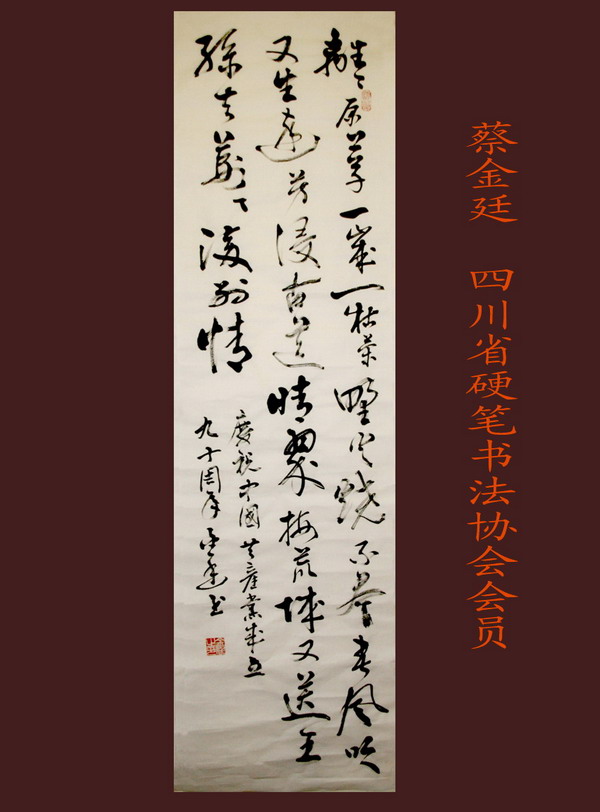 蔡金廷 四川省硬笔书法协会会员
離〻原草一歲一枯榮野火燒不盡春風吹
又生遠芳侵古道晴翠接荒城又送王
孫去萋〻滿别情
慶祝中國共產黨成立
九十周年金廷书